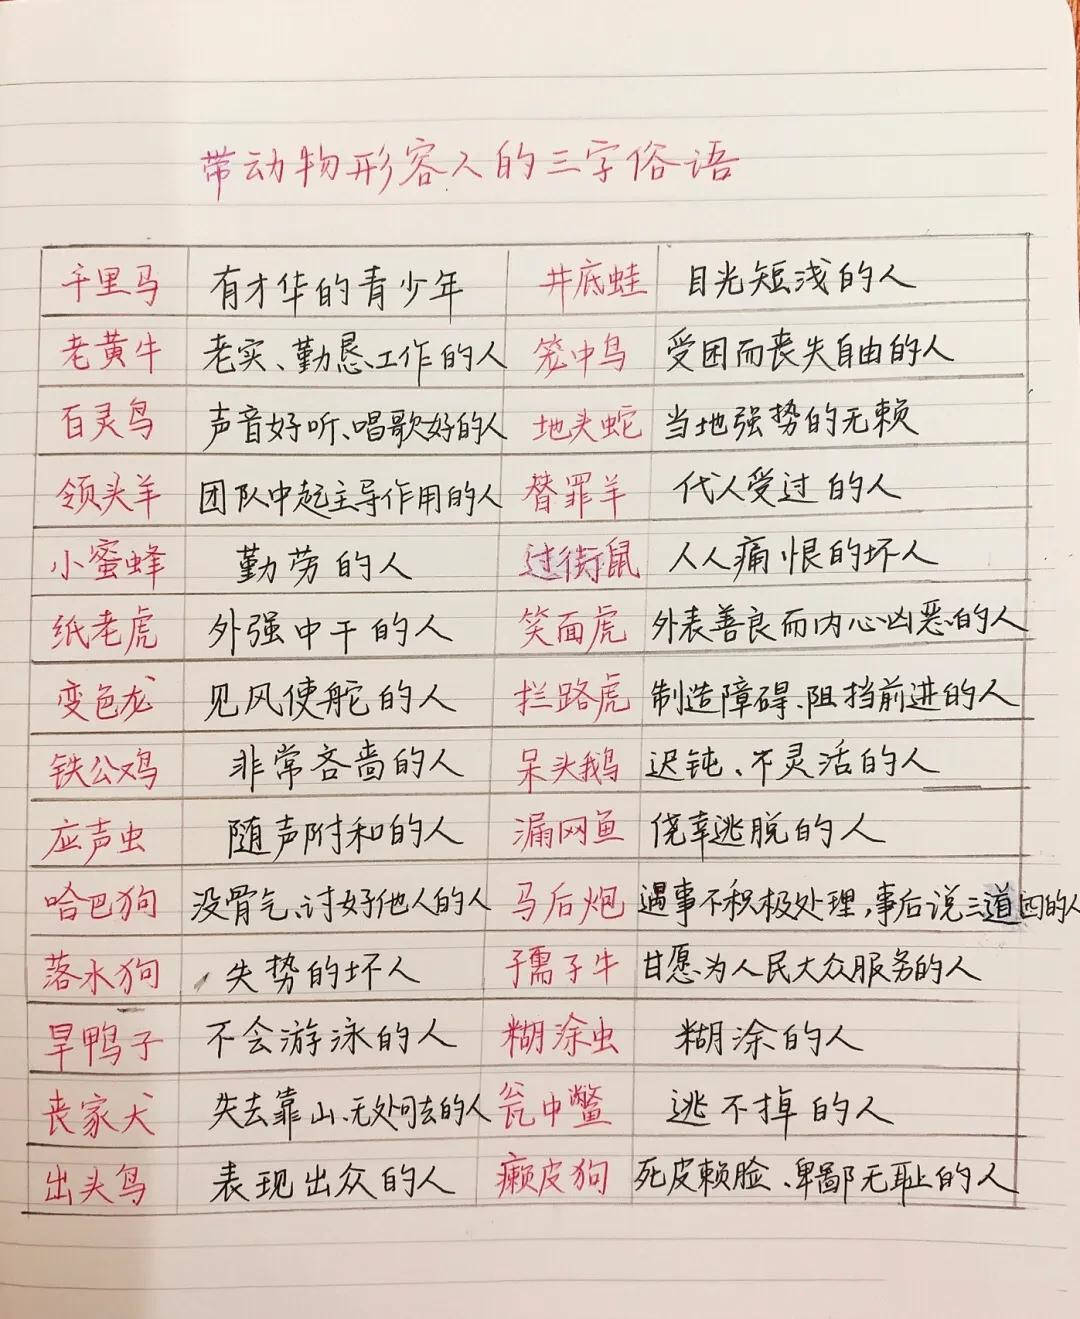 带动物形容人的三字俗语
千里马 有才华的青少年 井底蛙 目光短浅的人
老黄牛 老实、勤恳工作的人 笼中鸟 受困而丧失自由的人
百灵鸟 声音好听、唱歌好的人 地头蛇 当地强势的无赖
领头羊 团队中起主导作用的人 替罪羊 代人受过的人
小蜜蜂 勤劳的人 过街鼠 人人痛恨的坏人
纸老虎 外强中干的人 笑面虎 外表善良而内心凶恶的人
变色龙 见风使舵的人 拦路虎 制造障碍、阻挡前进的人
铁公鸡 非常吝啬的人 呆头鹅 迟钝、不灵活的人
应声虫 随声附和的人 漏网鱼 侥幸逃脱的人
哈巴狗 没骨气、讨好他人的人 马后炮 遇事不积极处理,事后说三道四的人
落水狗 失势的坏人 孺子牛 甘愿为人民大众服务的人
旱鸭子 不会游泳的人 糊涂虫 糊涂的人
丧家犬 失去靠山、无处可去的人 瓮中鳖 逃不掉的人
出头鸟 表现出众的人 癞皮狗 死皮赖脸、卑鄙无耻的人